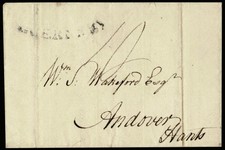 Wm. S. Wakeford Esqr.
Andover
Hants